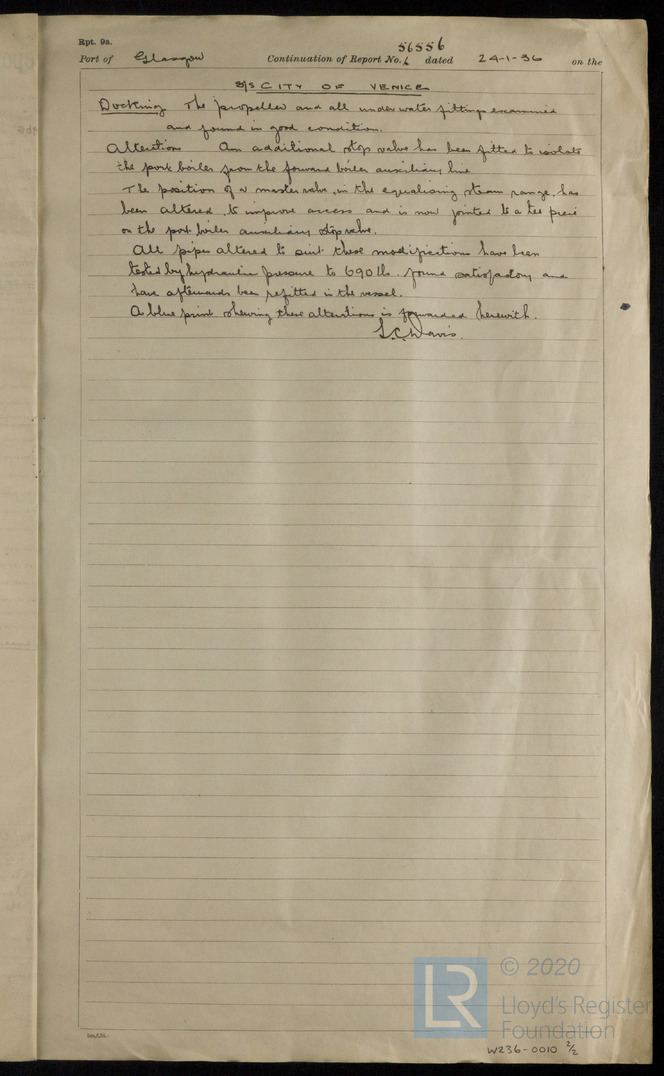 Rpt. 9a.
56556
Port of Glasgow Continuation of Report No. dated 24-1-36 on the
S/S CITY OF VENICE
Docking The propeller and all under water fittings examined
and found in good condition.
Alterations An additional stop valve has been fitted to isolate
the port boiler from the forward boiler auxiliary line
The position of a master valve, in the equalising steam range, has
been altered, to improve access and is now jointed to a tee piece
on the port boiler auxiliary stop valve.
All pipes altered to suit these modifications have been
tested by hydraulic pressure to 690 lb. found satisfactory and
have afterwards been refitted in the vessel.
A blue print shewing these alterations is forwarded herewith.
S.C. Davis.
© 2020
LR
Lloyd's Register
Foundation
W236-0010 2/2